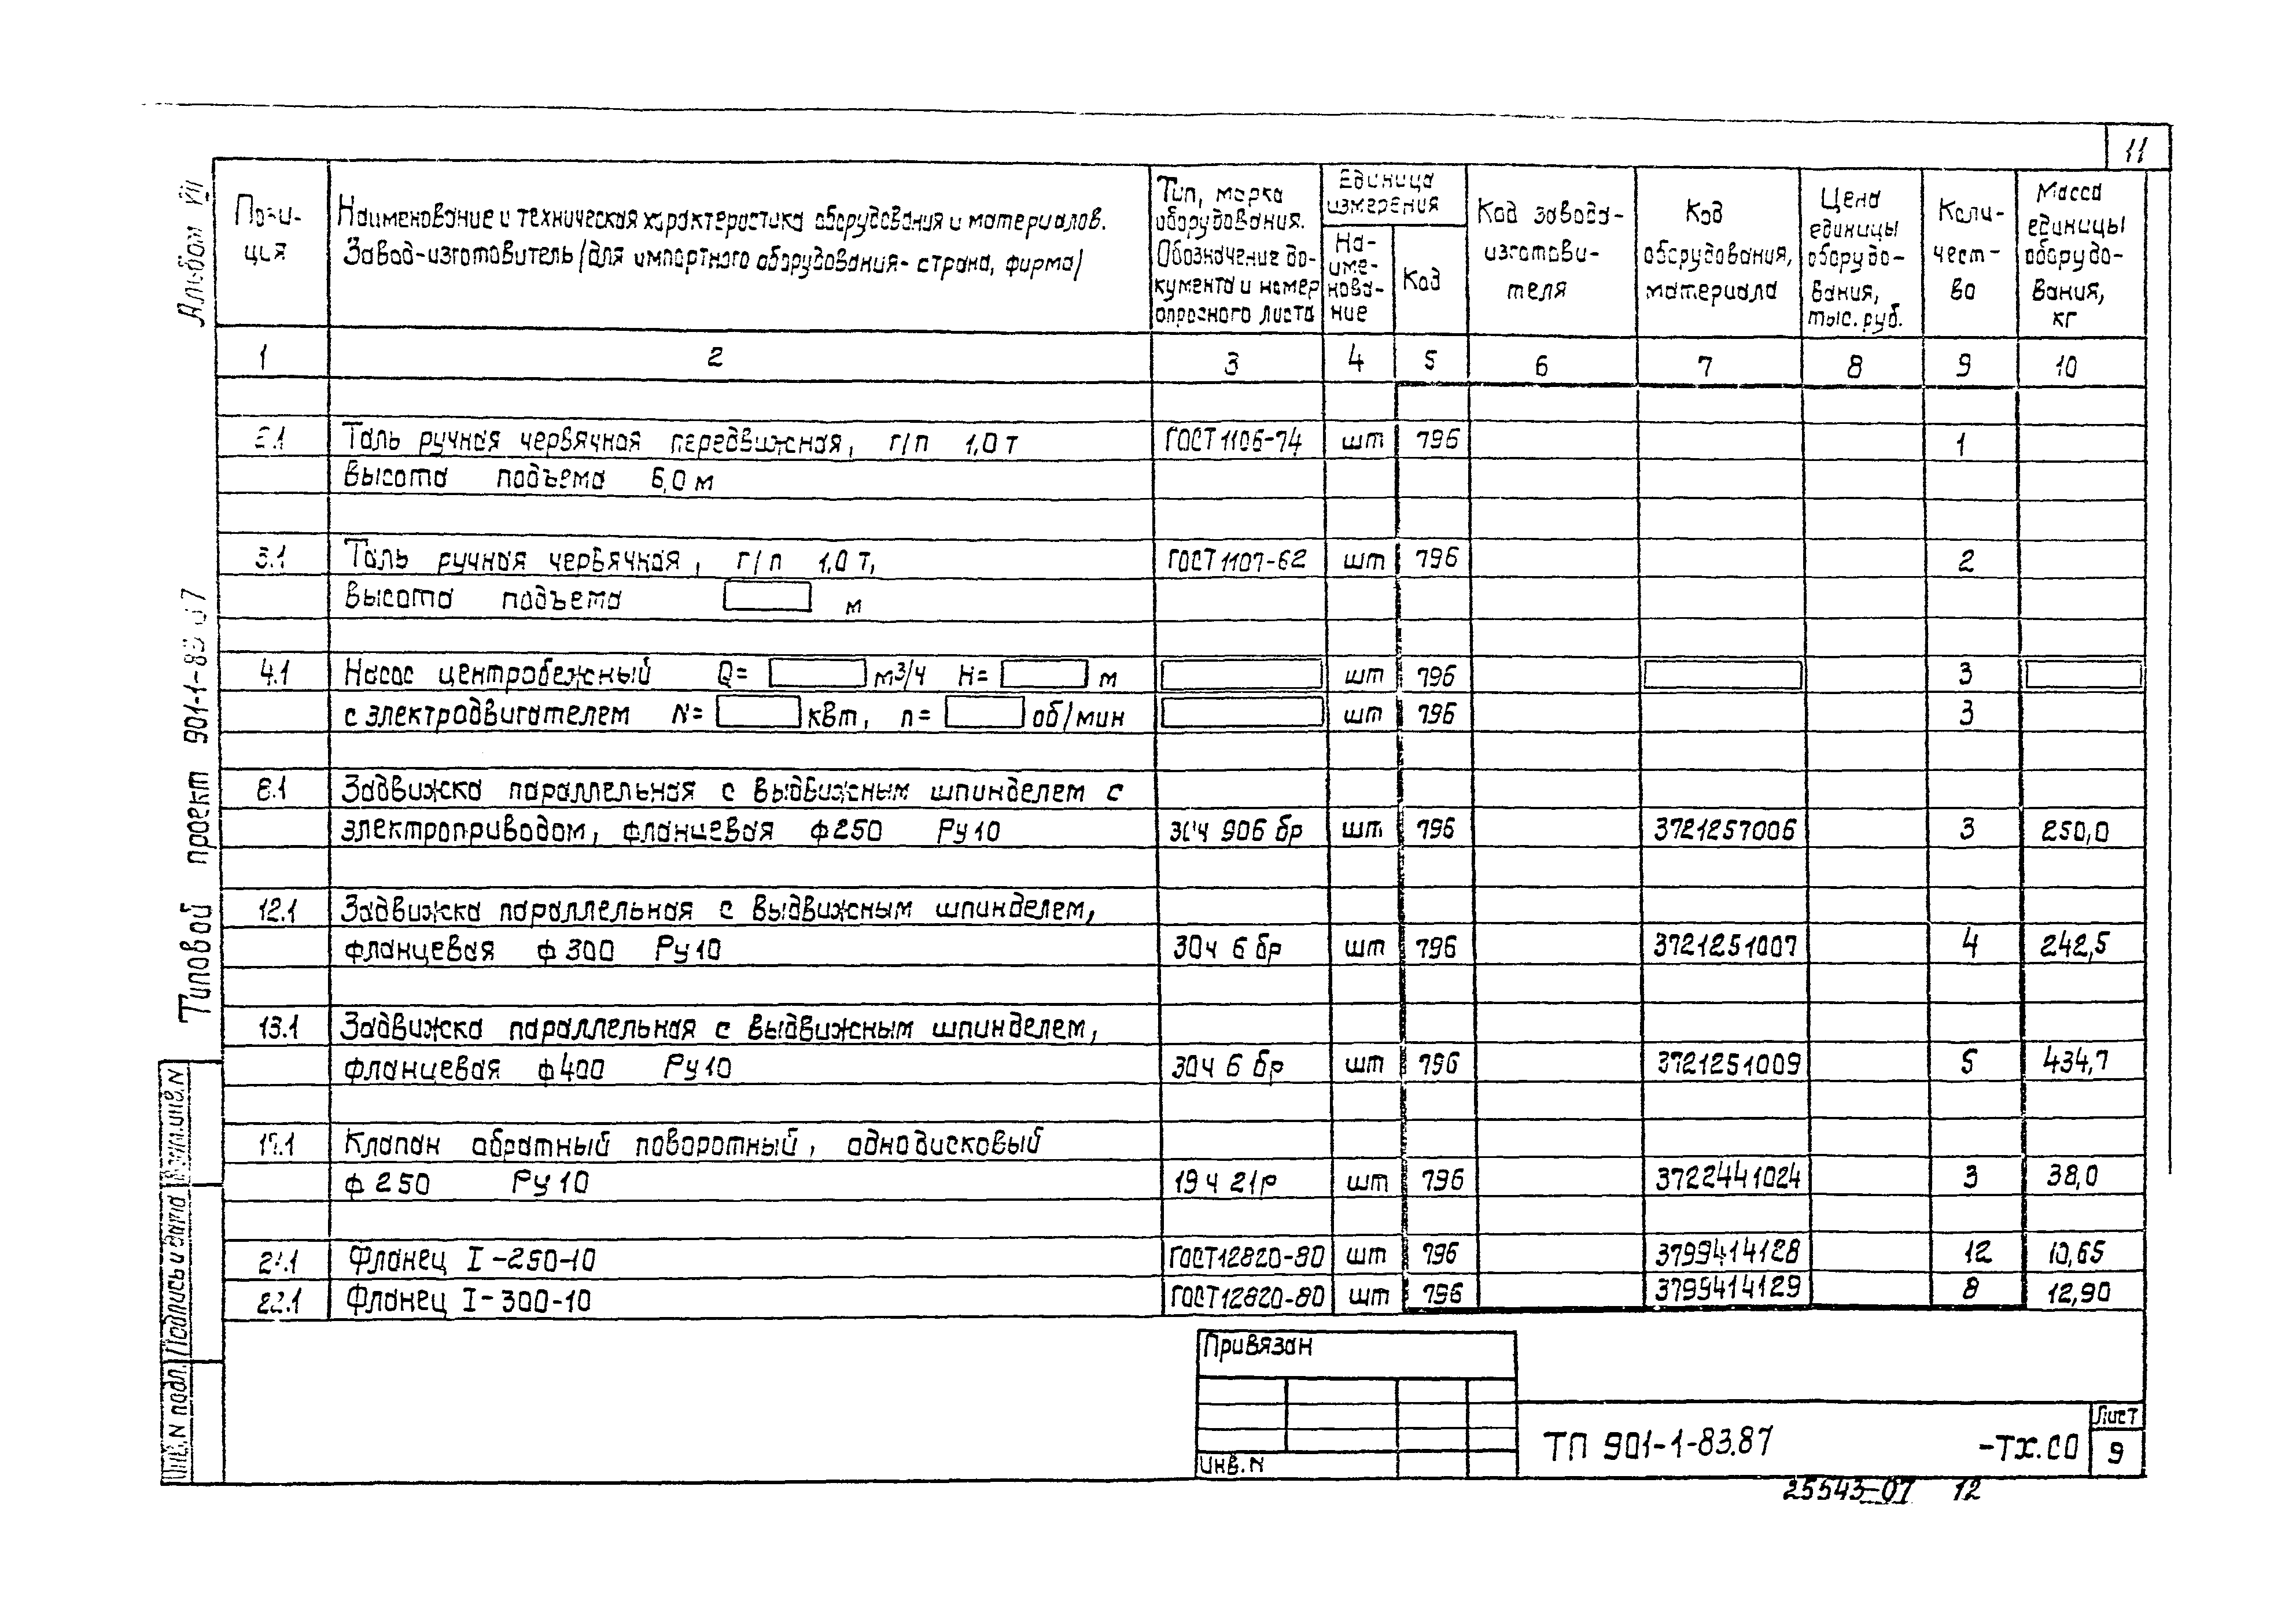 11
Альбом VII
Типовой проект 901-1-83.87
Пози-
ция
Наименование и техническая характеристика оборудования и материалов.
Завод-изготовитель (для импортного оборудования- страна, фирма)
Тип, марка
оборудования.
Обозначение до-
кумента и номер
опросного листа
Единица
измерения
На-
име-
нова-
ние
Код
Код завода-
изготови-
теля
Код
оборудования,
материала
Цена
единицы
оборудо-
вания,
тыс. руб.
Коли-
чест-
во
Масса
единицы
оборудо-
вания,
кг
1 2 3 4 5 6 7 8 9 10
2.1 Таль ручная червячная передвижная, г/п 1,0 т ГОСТ 1106-74 шт 796 1
высота подъема 6,0 м
3.1 Таль ручная червячная, г/п 1,0 т, ГОСТ 1107-62 шт 796 2
высота подъема м
4.1 Насос центробежный Q= м3/ч H= м шт 796 3
с электродвигателем N= квт, n= об/мин шт 796 3
8.1 Задвижка параллельная с выдвижным шпинделем с
электроприводом, фланцевая ф250 Ру10 30ч 906 бр шт 796 3721257006 3 250,0
12.1 Задвижка параллельная с выдвижным шпинделем,
фланцевая ф300 Ру10 30ч 6 бр шт 796 3721251007 4 242,5
13.1 Задвижка параллельная с выдвижным шпинделем,
фланцевая ф400 Ру10 30ч 6 бр шт 796 3721251009 5 434,7
Клапан обратный поворотный, однодисковый
ф250 Ру10 19ч 21р шт 796 3722441024 3 38,0
Фланец I-250-10 ГОСТ 12820-80 шт 796 3799414128 12 10,65
22.1 Фланец I-300-10 ГОСТ 12820-80 шт 796 3799414129 8 12,90
Инв. N подл. Подпись и дата Взам. инв. N
Привязан
Инв. N
ТП 901-1-83.87 -ТХ.СО
Лист
9
25543-07 12